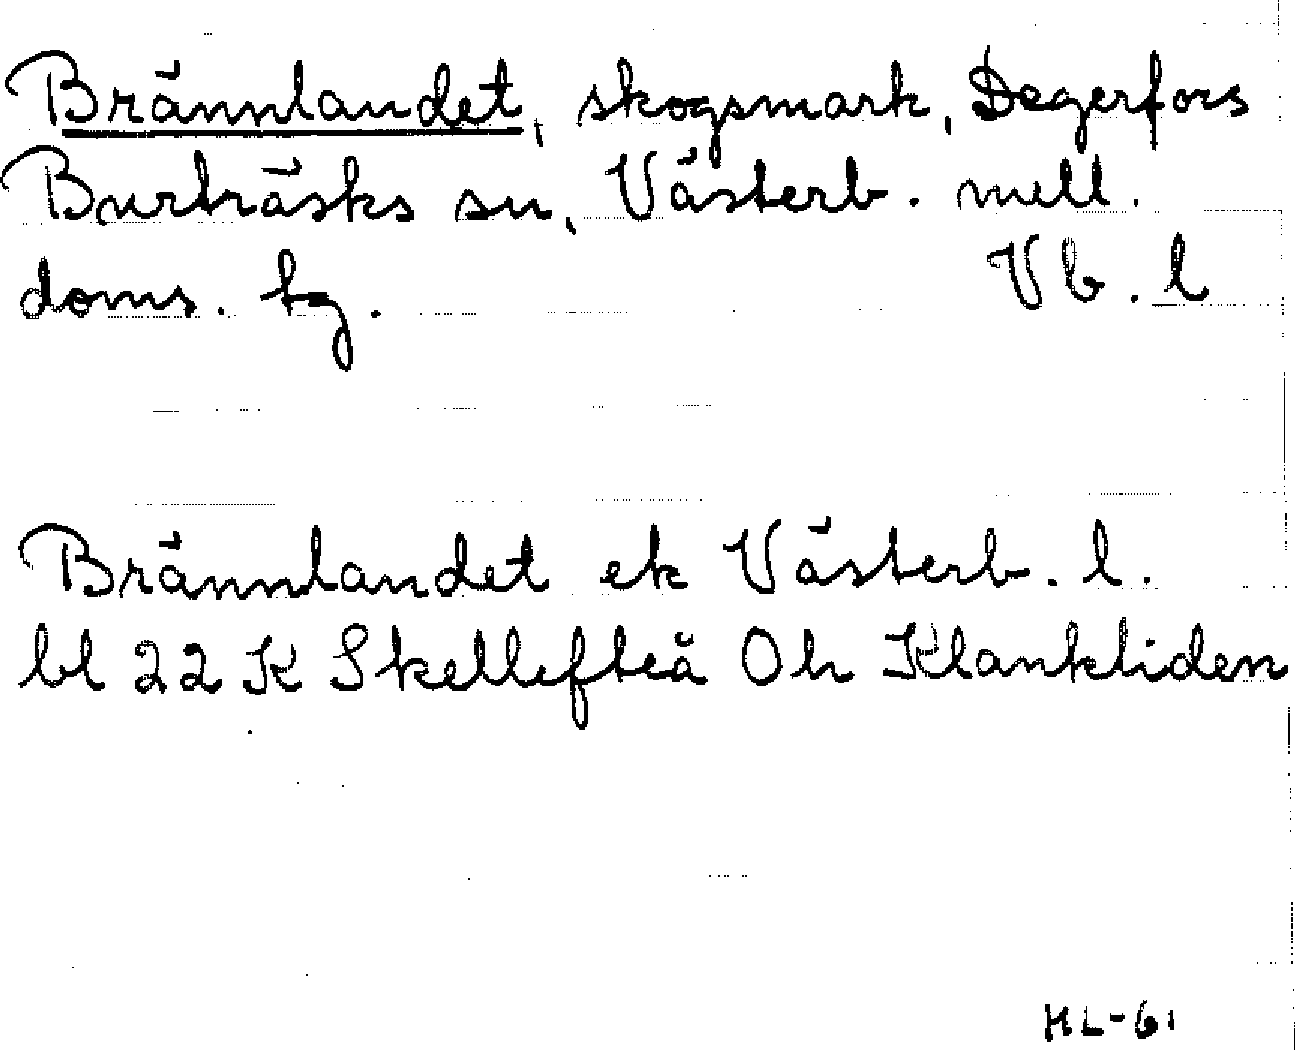 Brännlandet, skogsmark, Degerfors
Burträsks sn, Västerb. mell.
doms. tg. Vb. l
Brännlandet ek Västerb. l.
bl 22 K Skellefteå Oh Klankliden
HL-61